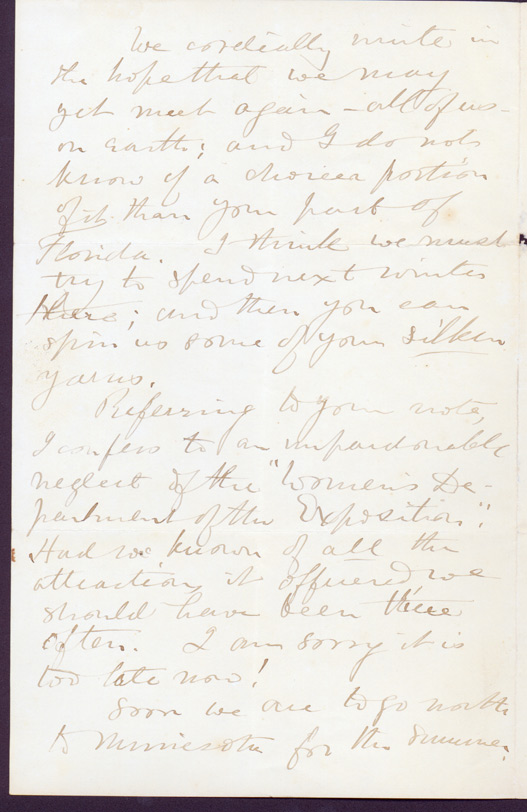 We cordially unite in
the hope that we may
yet meet again - all of us -
on earth; and I do not
know of a choicer portion
of it than your part of
Florida. I think we must
try to spend next winter
there; and then you can
spin us some of your silken
yarns.
Referring to your note,
I confess to an unpardonable
neglect of the "Women's De-
partment of the Exposition".
Had we known of all the
attractions it offered we
should have been there
often. I am sorry it is
too late now!
Soon we are to go north
to Minnesota for the summer,